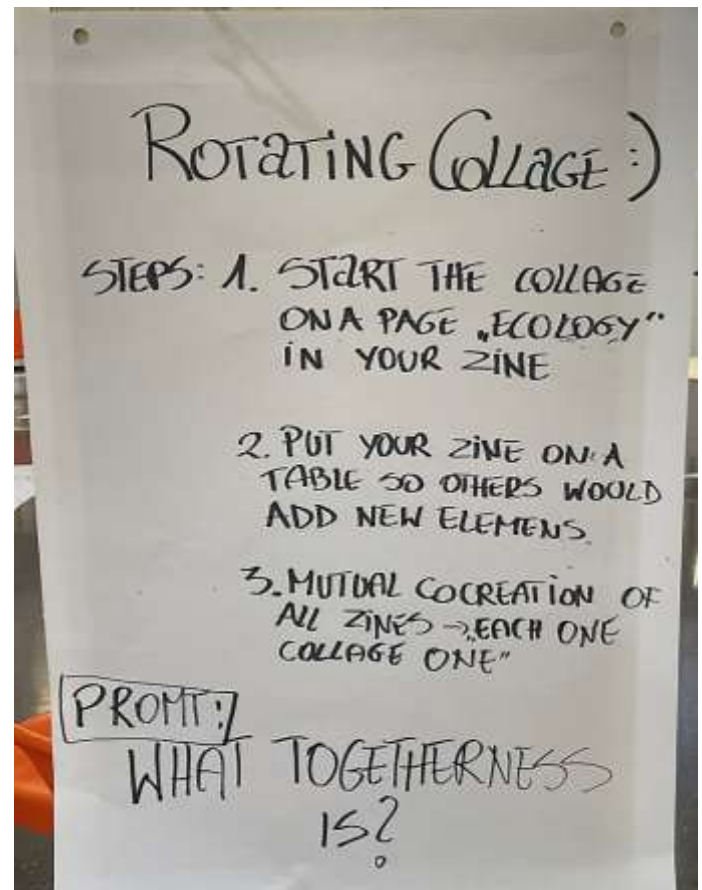 ROTATING COLLAGE :)
STEPS: 1. START THE COLLAGE
ON A PAGE „ECOLOGY"
IN YOUR ZINE
2. PUT YOUR ZINE ON A
TABLE SO OTHERS WOULD
ADD NEW ELEMENS.
3. MUTUAL COCREATION OF
ALL ZINES → „EACH ONE
COLLAGE ONE"
PROMT:
WHAT TOGETHERNESS
IS?